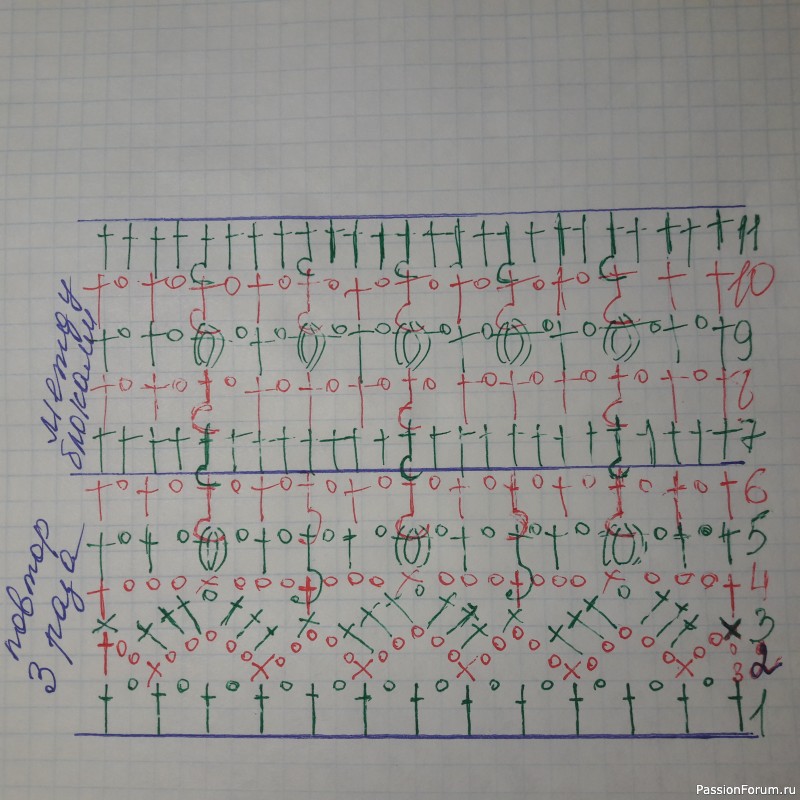 между
блоками
11
10
9
8
7
повтор
3 раза
6
5
4
3
2
3
1
PassionForum.ru